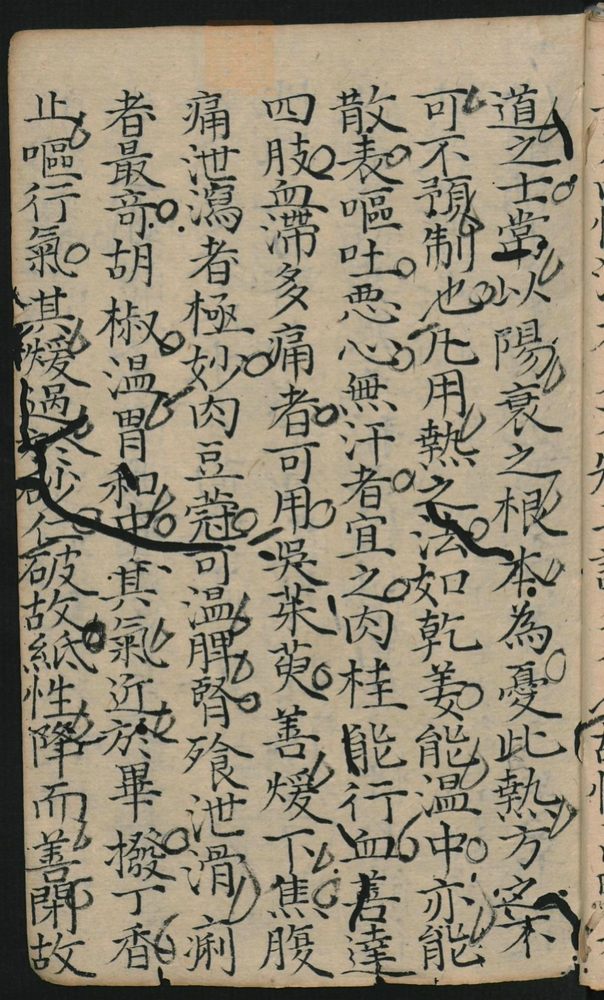 道之士當以陽衰之根本為憂此熱方之不
可不預制也凡用熱之法如乾姜能溫中亦能
散表嘔吐悪心無汗者宜之肉桂能行血善達
四肢血滯多痛者可用吳茱萸善煖下焦腹
痛泄瀉者極妙肉豆蔻可溫脾腎飱泄滑痢
者最竒胡椒溫胃和中其氣近於畢撥丁香
止嘔行氣其煖過 砂仁破故紙性降而善閉故